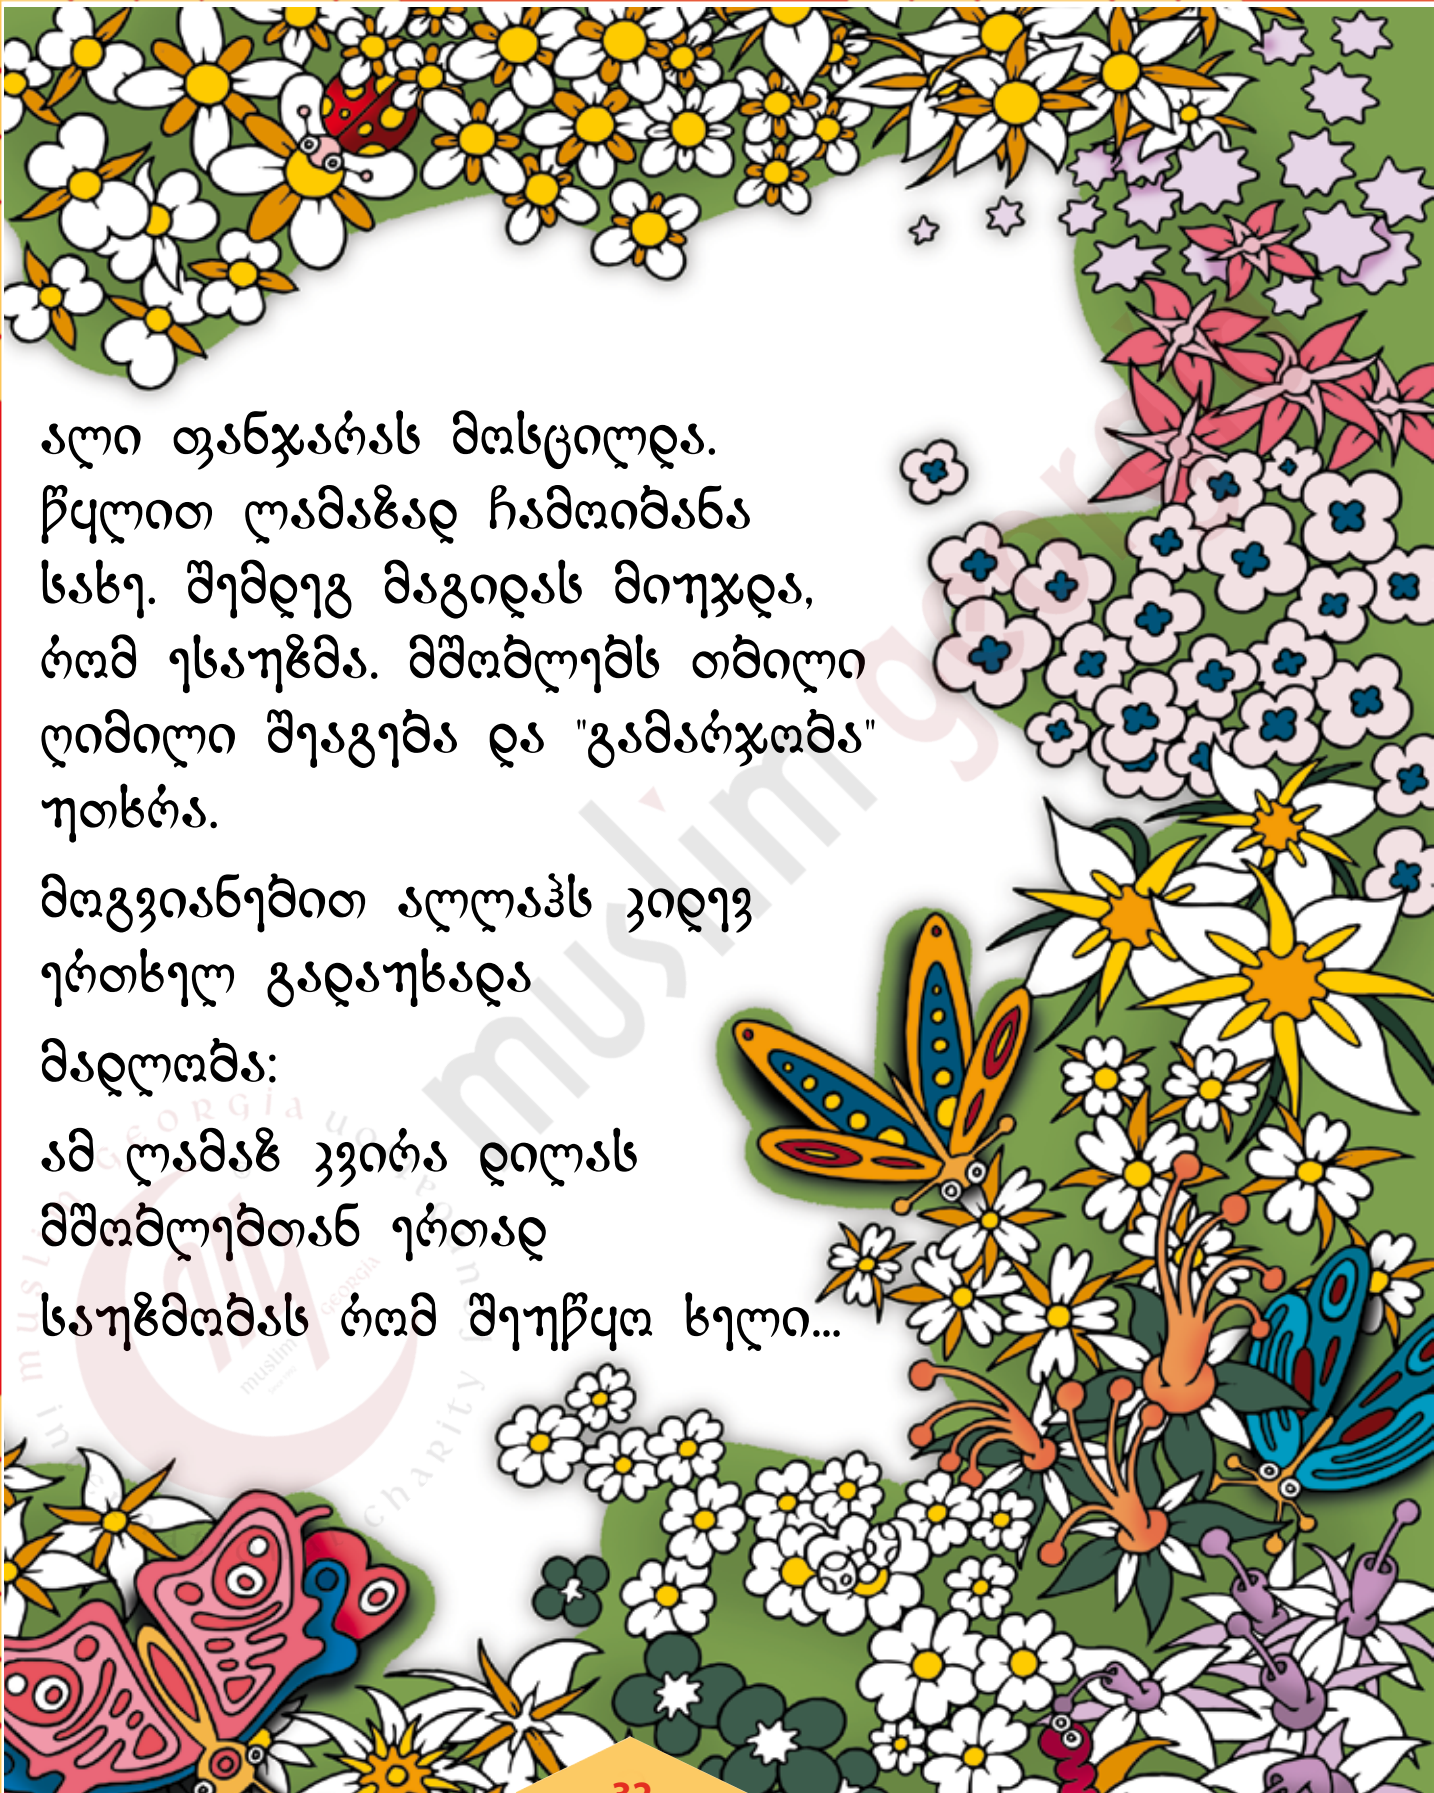 ალი ფანჯარას მოსცილდა.
წყლით ლამაზად ჩამოიბანა
სახე. შემდეგ მაგიდას მიუჯდა,
რომ ესაუზმა. მშობლებს თბილი
ღიმილი შეაგება და "გამარჯობა"
უთხრა.
მოგვიანებით ალლაჰს კიდევ
ერთხელ გადაუხადა
მადლობა:
ამ ლამაზ კვირა დილას
მშობლებთან ერთად
საუზმობას რომ შეუწყო ხელი...
muslim georgia